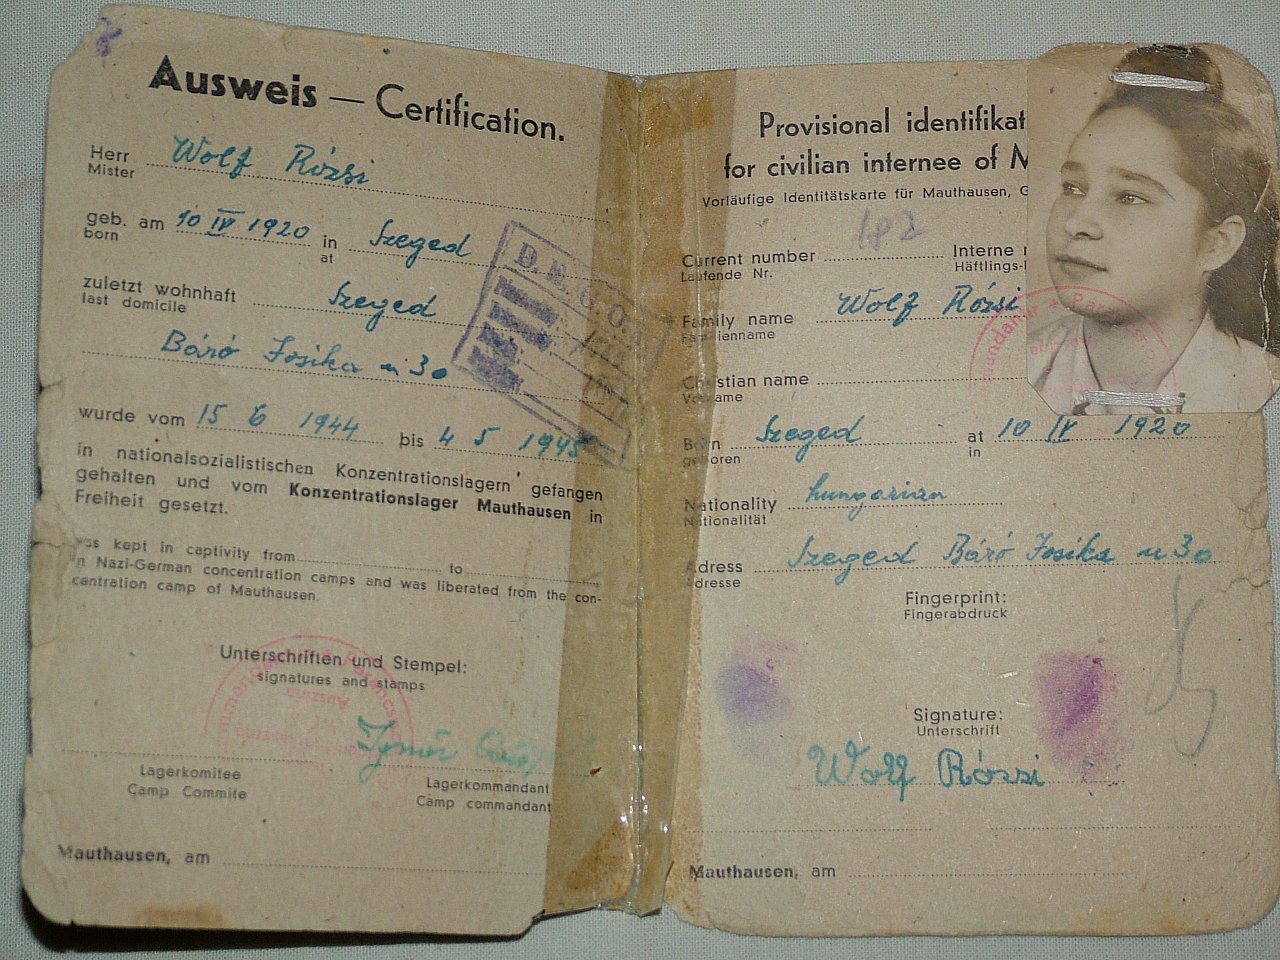 Ausweis — Certification.
Herr Wolf Rózsi
Mister
geb. am 10 IV 1920 in Szeged
born at
zuletzt wohnhaft Szeged
last domicile
Báró Josika u 30
wurde vom 15 6 1944 bis 4 5 1945
in nationalsozialistischen Konzentrationslagern gefangen
gehalten und vom Konzentrationslager Mauthausen in
Freiheit gesetzt.
was kept in captivity from to
in Nazi-German concentration camps and was liberated from the con-
centration camp of Mauthausen.
Unterschriften und Stempel:
signatures and stamps
Lagerkomitee
Camp Commite
Lagerkommandant
Camp commandant
Mauthausen, am
D. E. G. O.
Provisional identifikat
for civilian internee of M
Vorläufige Identitätskarte für Mauthausen, G
Current number 182 Interne
Laufende Nr. Häftlings-
Family name Wolf Rózsi
Familienname
Christian name
Vorname
Born Szeged at 10 IV 1920
geboren in
Nationality hungarian
Nationalität
Adress Szeged Báró Josika u 30
Adresse
Fingerprint:
Fingerabdruck
Signature:
Unterschrift
Wolf Rózsi
Mauthausen, am